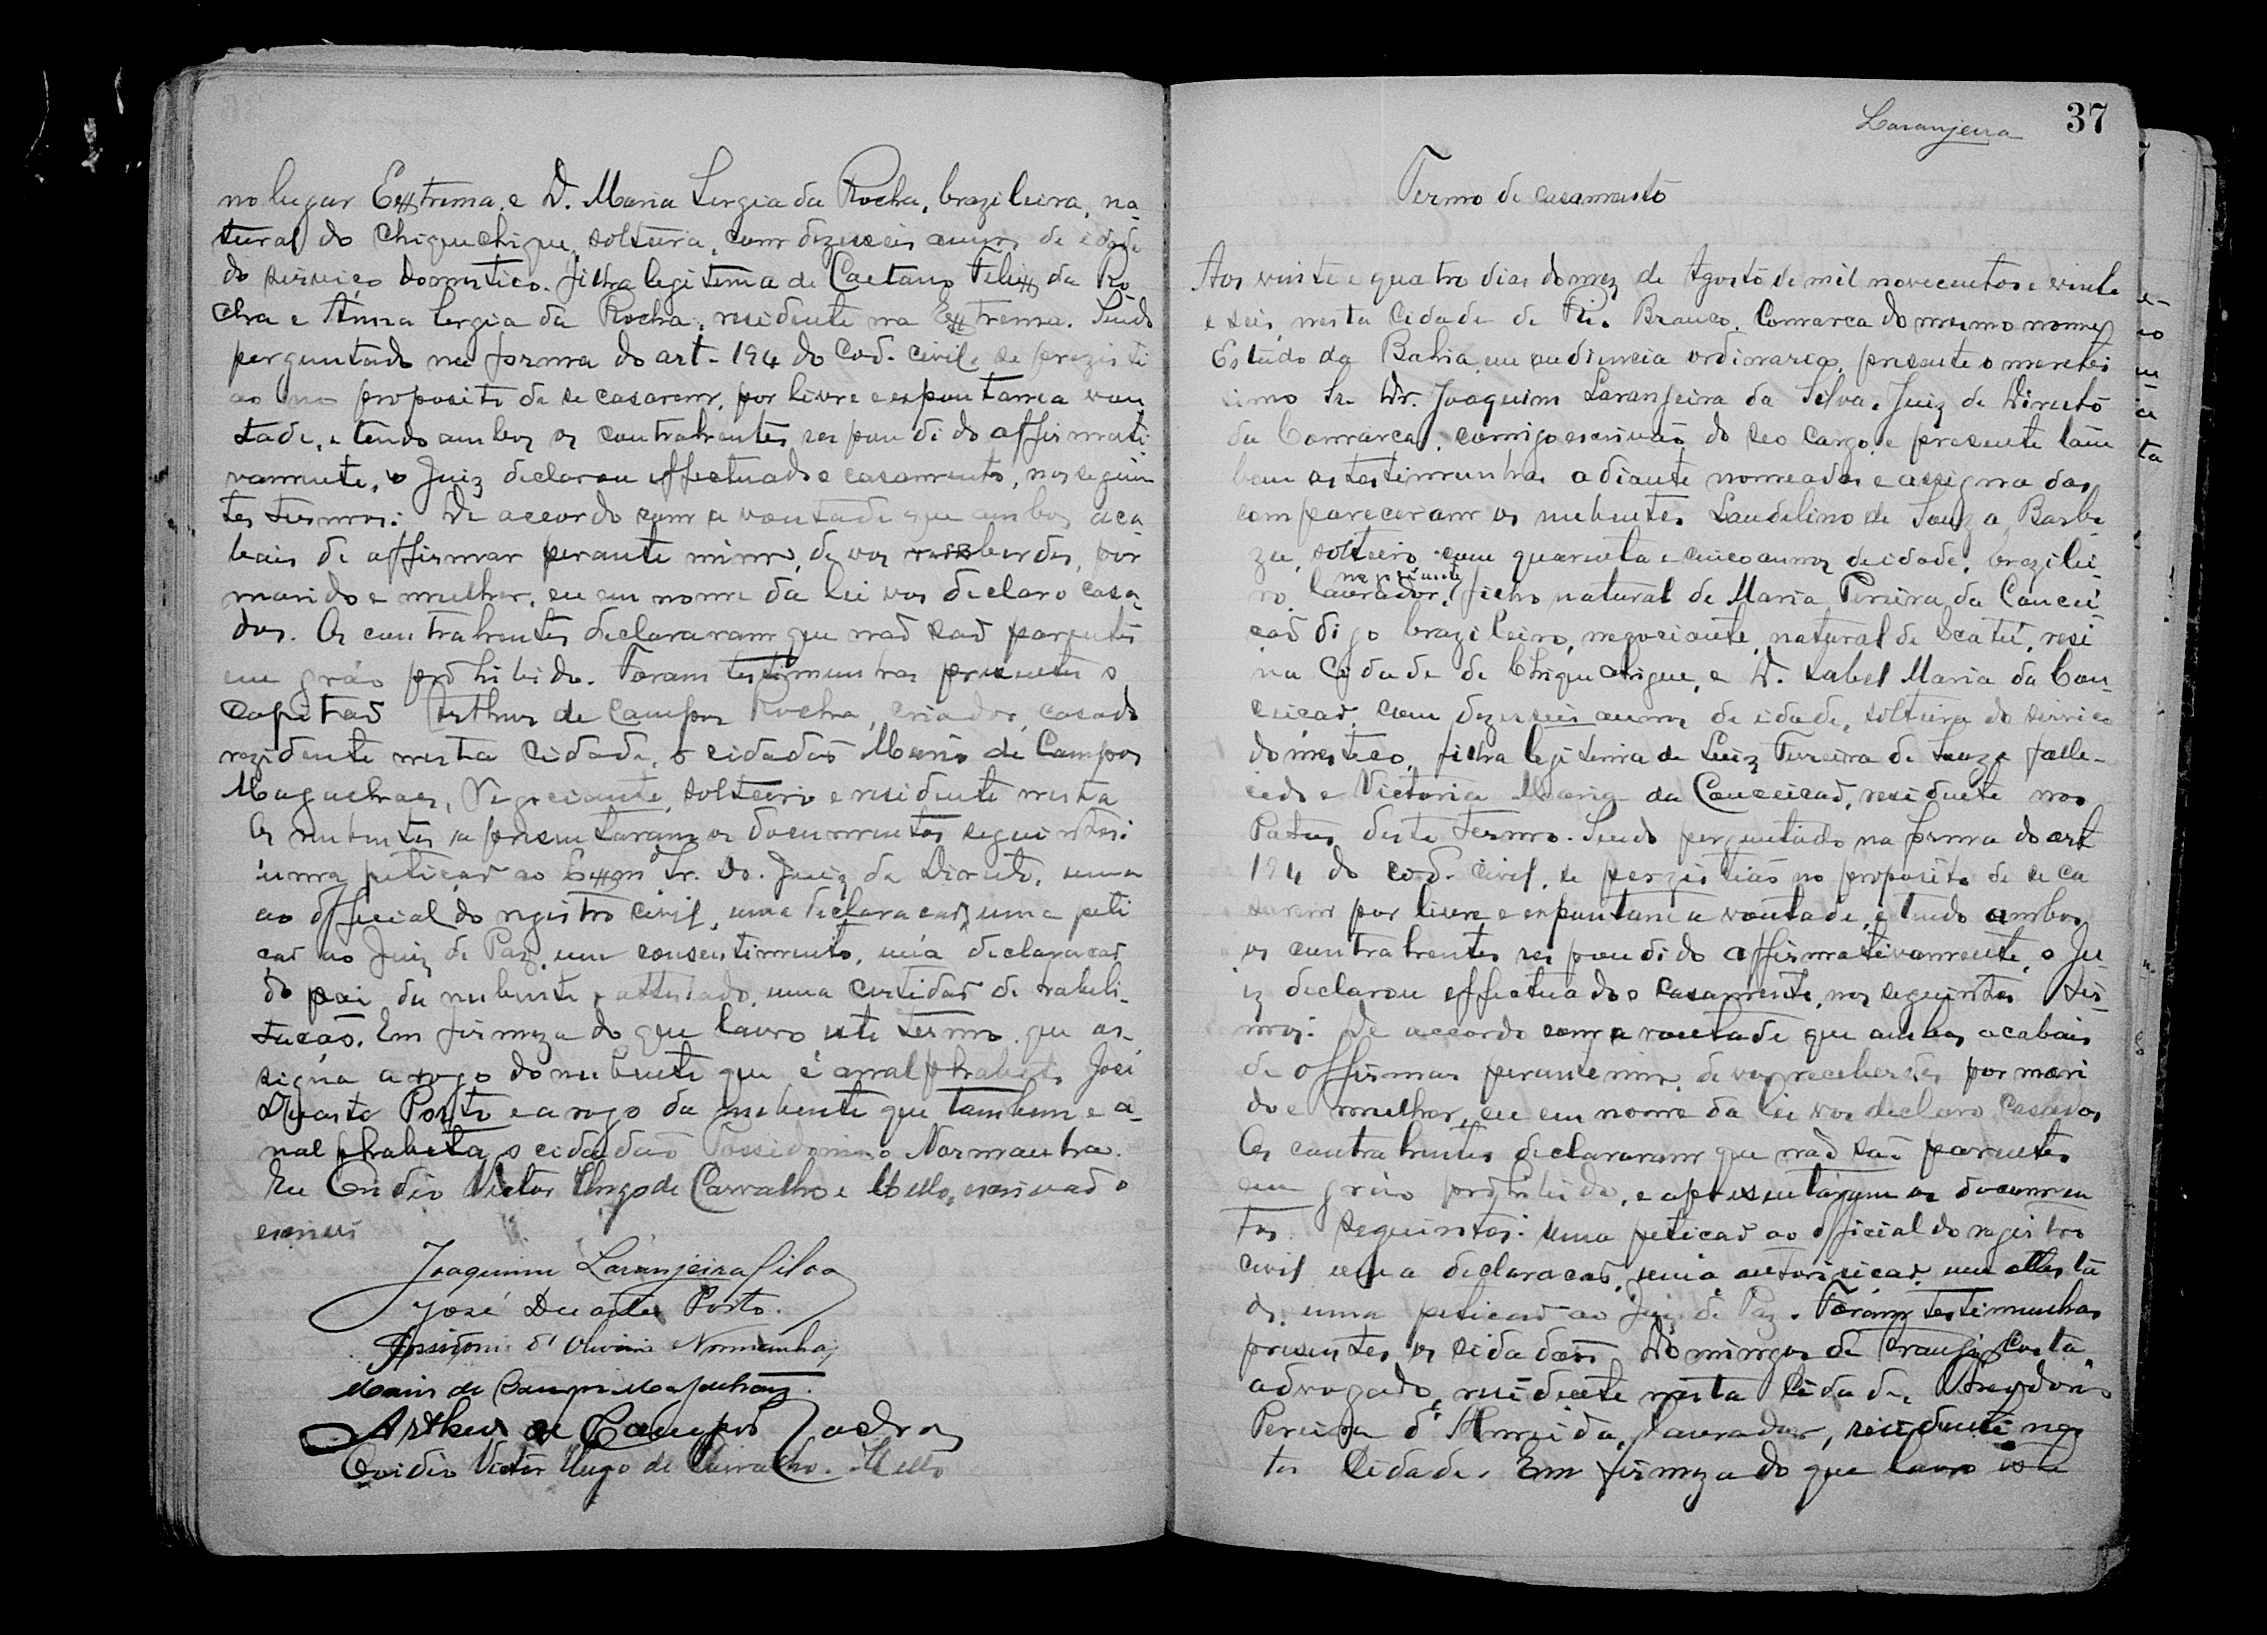 no lugar Extrema, e D. Maria Sergia da Rocha, brazileira, na-
tural do Chiquechique, solteira, com dezeseis annos de idade
do serviço domestico. filha legitima de Caetano Felix da Ro
cha e Anna Sergia da Rocha, residente na Extrema. Sendo
perguntado na forma do art. 194 do Cod. civil, se prezisti
ao no proposito de se casarem, por livre e expontania von
tade, e tendo ambos os contrahentes respondido affirmati
vamente, o Juiz declarou effectuado o casamento, nos seguin
tes termos: De accordo com a vontade que ambos aca
bais de affirmar perante mim, de vos receberdes, por
marido e mulher, eu em nome da lei vos declaro casa-
dos. Os contrahentes declararam que naõ saõ parentes
em gráo prohibido. Foram testimunhas presentes o
Capitaõ Arthur de Campos Rocha, criador, casado
rezidente nesta Cidade, o cidadaõ Mario de Campos
Magalhaes, Negociante, solteiro e residente nesta
Os nubentes apresentaram os documentos seguintes:
uma petiçaõ ao Exmº Sr. Dr. Juiz de Direito, uma
ao official do registro civil, uma declaraçaõ, uma peti
çaõ ao Juiz de Paz, um consentimento, uma declaraçaõ
do pai da nubente, attestado, uma certidaõ de habili-
taçaõ. Em firmeza do que lavro este termo que as-
signa a rogo do nubente que é analphabeto José
Duarte Porto e a rogo da nubente que tambem e a-
nalphabeta, o cidadaõ Possidonio Normanha.
Eu Ovidio Victor Hugo de Carvalho e Mello, escrivaõ o
escrevi
Joaquim Laranjeira Silva
José Duarte Porto.
Possidonio d' Oliveira Normanha
Mario de Campos Magalhães.
Arthur de Campos
Ovidio Victor Hugo de Carvalho. Mello
Laranjeira 37
Termo de casamento
Aos vinte e quatro dias do mez de Agosto de mil novecentos e vinte
e seis, nesta Cidade de Rio Branco, Comarca do mesmo nome
Estado da Bahia, em audiencia ordinaria, presente o meretis
simo Sr. Dr. Joaquim Laranjeira da Silva, Juiz de Direito
da Comarca, comigo escrivaõ do seo cargo, e presente tam
bem as testimunhas adiante nomeadas e assignadas
compareceram os nubentes Laudelino de Souza Barbo
za, solteiro com quarenta e cinco annos de idade, brazilei-
negociante
ro, lavrador, filho natural de Maria Pereira da Concei
çaõ digo brazileiro, negociante, natural de Icatú, resi
na Cidade de Chiquechique, e D. Isabel Maria da Con-
ceiçaõ, com dezeseis annos de idade, solteira do serviço
domestico, filha legitima de Luiz Ferreira de Souza falle-
cido e Victoria Maria da Conceiçaõ, residente nos
Patos deste termo. Sendo perguntado na forma do art
194 do cod. civil, se perzistiaõ no proposito de se ca
sarem por livre e expontania vontade, e tendo ambos
os contrahentes respondido affirmativamente, o Ju-
iz declarou effectuado o casamento, nos seguintes ter-
mos: De accordo com a vontade que ambos acabais
de affirmar perante mim, de vos receberdes por mari
do e mulher, eu em nome da lei vos declaro casados
Os contrahentes declararam que naõ saõ parentes
em gráo prohibido, e apresentaram os documen
tos seguintes: Uma petiçaõ ao official do registro
civil uma declaraçaõ, uma autorisiçaõ, um attesta
do, uma petiçaõ ao Juiz de Paz. Foram testimunhas
presentes os cidadaõs Domingos de Araujo Costa
advogado, residente nesta Cidade,
Pereira d' Almeida, lavrador, residente nes
ta Cidade. Em firmeza do que lavro este